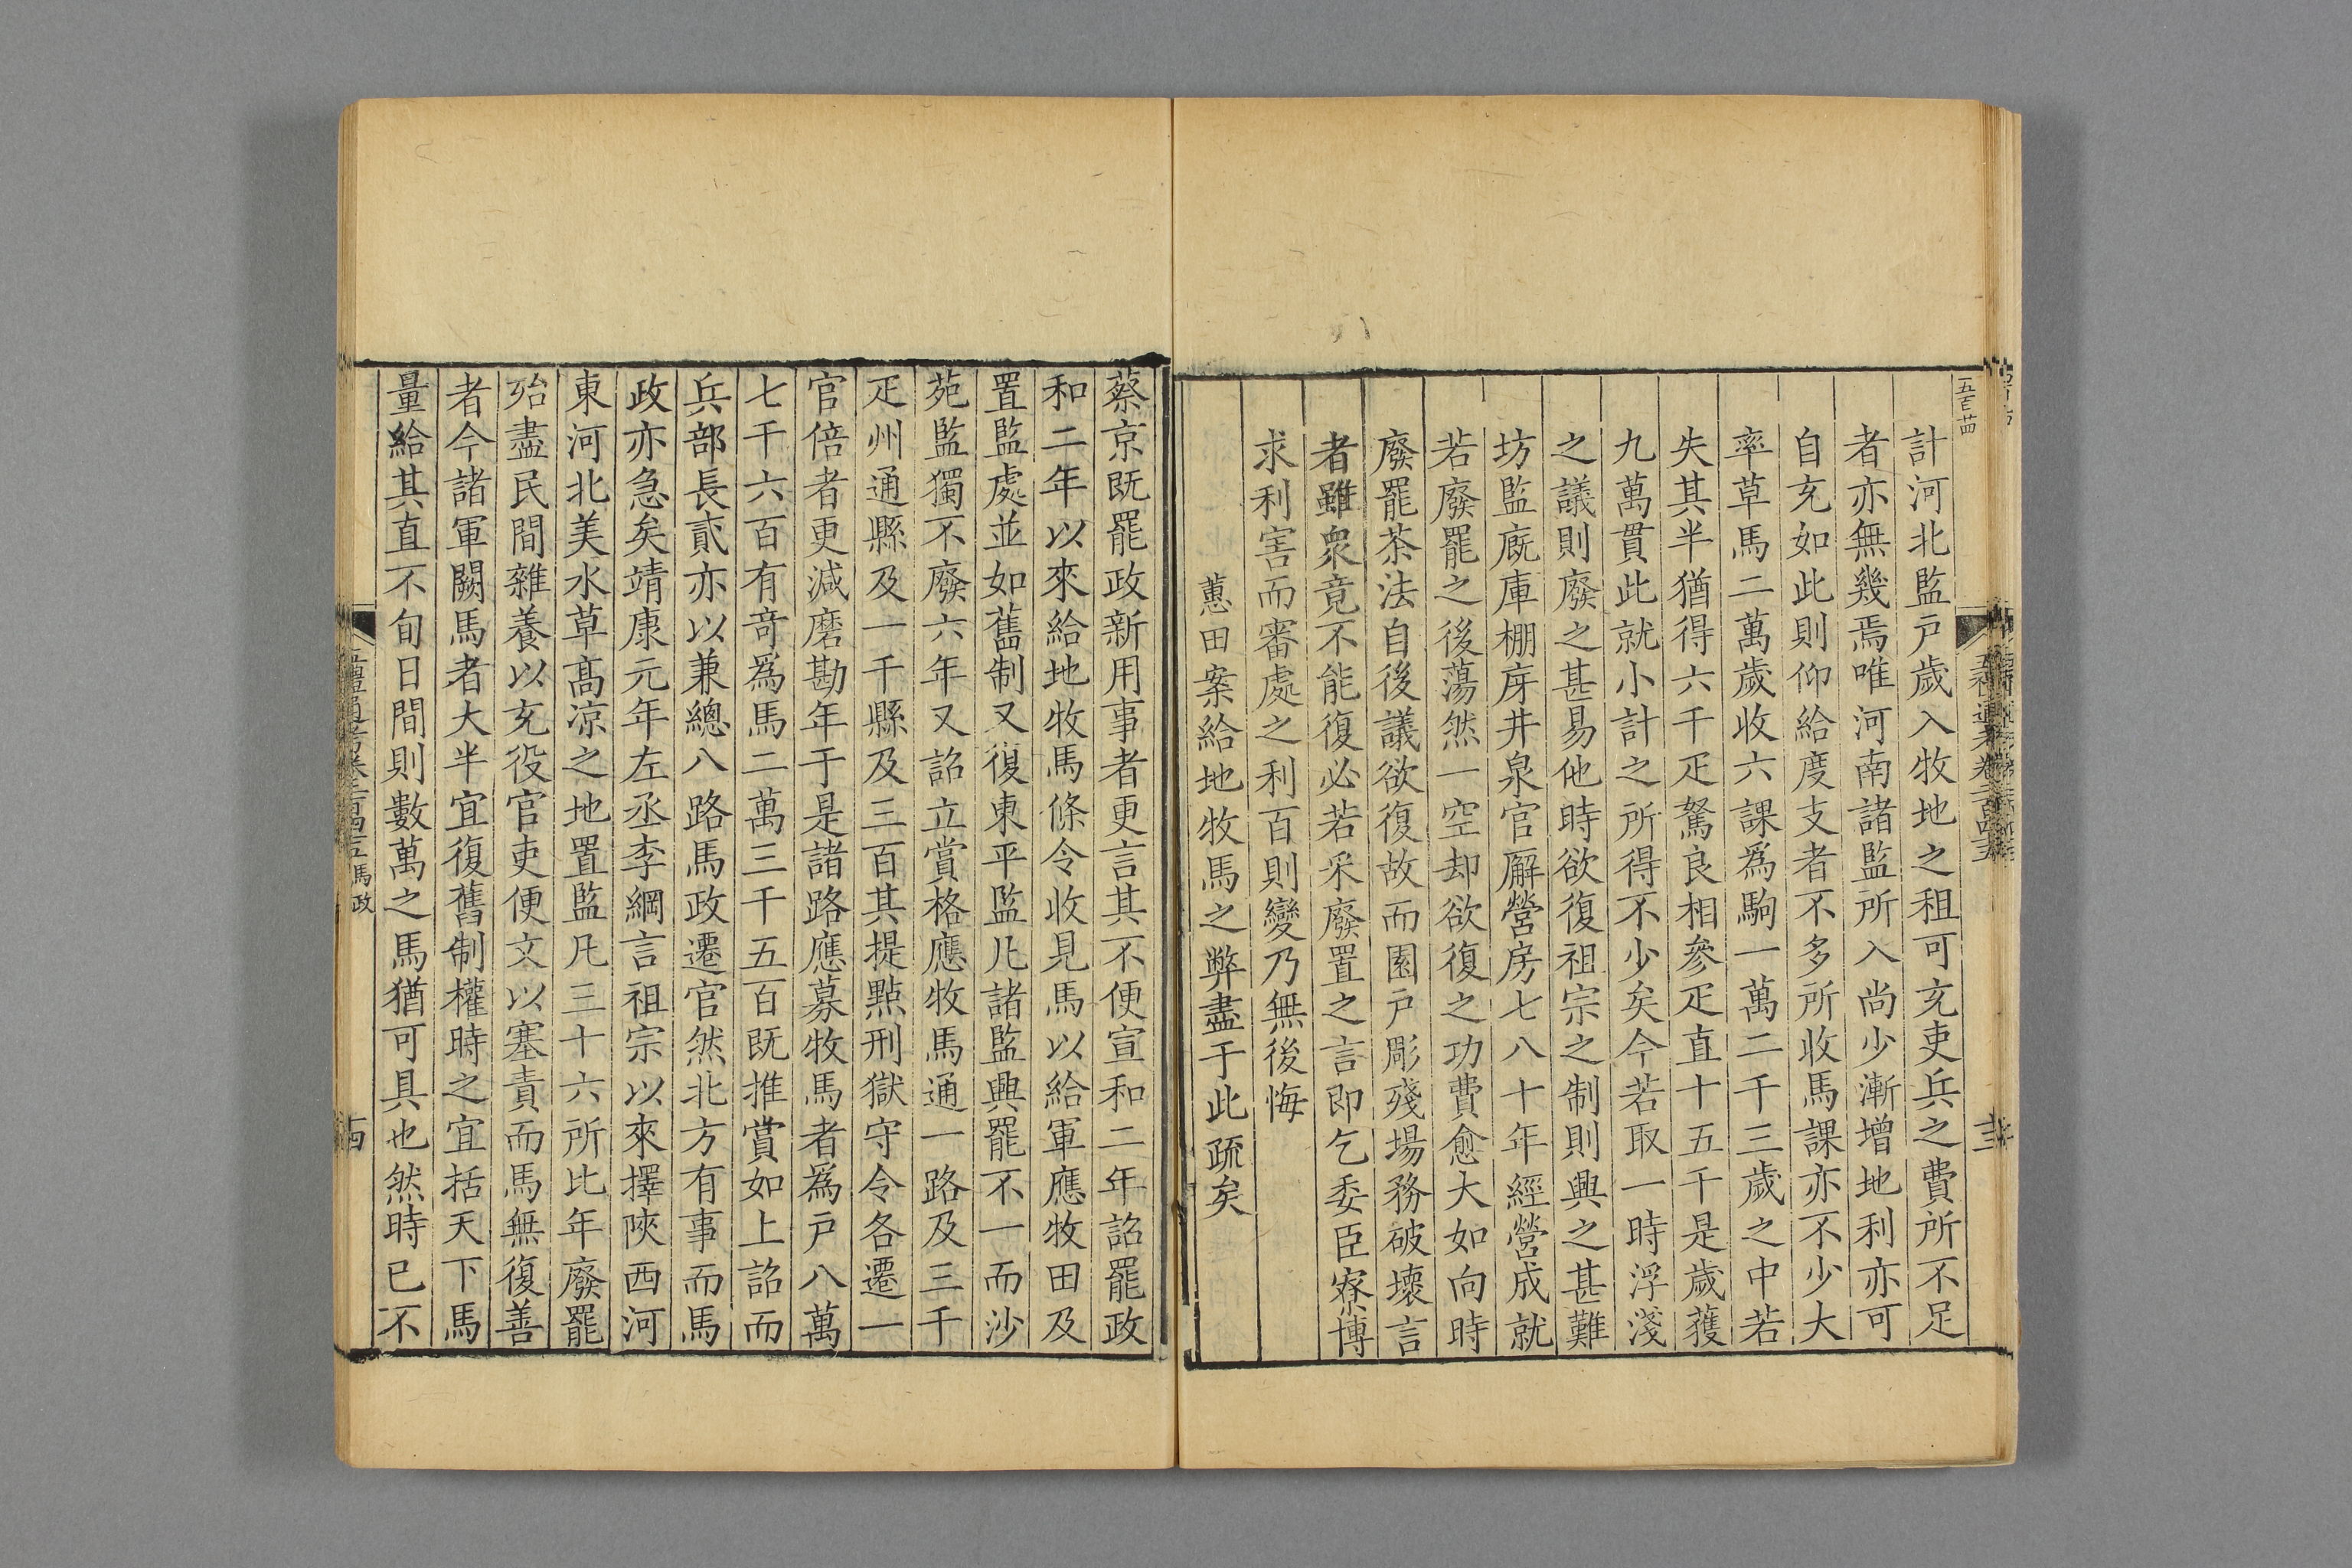 五百十四
計河北監戸歲入牧地之租可充吏兵之費所不足
者亦無幾焉唯河南諸監所入尚少漸增地利亦可
自充如此則仰給度支者不多所收馬課亦不少大
率草馬二萬歲收六課爲駒一萬二千三歲之中若
失其半猶得六千疋駑良相參疋直十五千是歲獲
九萬貫此就小計之所得不少矣今若取一時浮淺
之議則廢之甚易他時欲復祖宗之制則興之甚難
坊監廐庫棚庌井泉官廨營房七八十年經營成就
若廢罷之後蕩然一空却欲復之功費愈大如向時
廢罷茶法自後議欲復故而園戸彫殘場務破壞言
者雖衆竟不能復必若采廢置之言即乞委臣寮博
求利害而審處之利百則變乃無後悔
蕙田案給地牧馬之弊盡于此疏矣
蔡京既罷政新用事者更言其不便宣和二年詔罷政
和二年以來給地牧馬條令收見馬以給軍應牧田及
置監處並如舊制又復東平監凡諸監興罷不一而沙
苑監獨不廢六年又詔立賞格應牧馬通一路及三千
疋州通縣及一千縣及三百其提點刑獄守令各遷一
官倍者更減磨勘年于是諸路應募牧馬者爲戸八萬
七千六百有奇爲馬二萬三千五百既推賞如上詔而
兵部長貳亦以兼總八路馬政遷官然北方有事而馬
政亦急矣靖康元年左丞李綱言祖宗以來擇陝西河
東河北美水草高凉之地置監凡三十六所比年廢罷
殆盡民間雜養以充役官吏便文以塞責而馬無復善
者今諸軍闕馬者大半宜復舊制權時之宜括天下馬
量給其直不旬日間則數萬之馬猶可具也然時已不
馬政